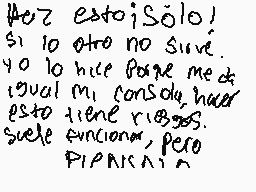 Haz esto ¡Sólo!
si lo otro no sirve.
yo lo hice Porqe me da
igual mi consola, hacer
esto tiene riesgos.
suele funcionar, pero